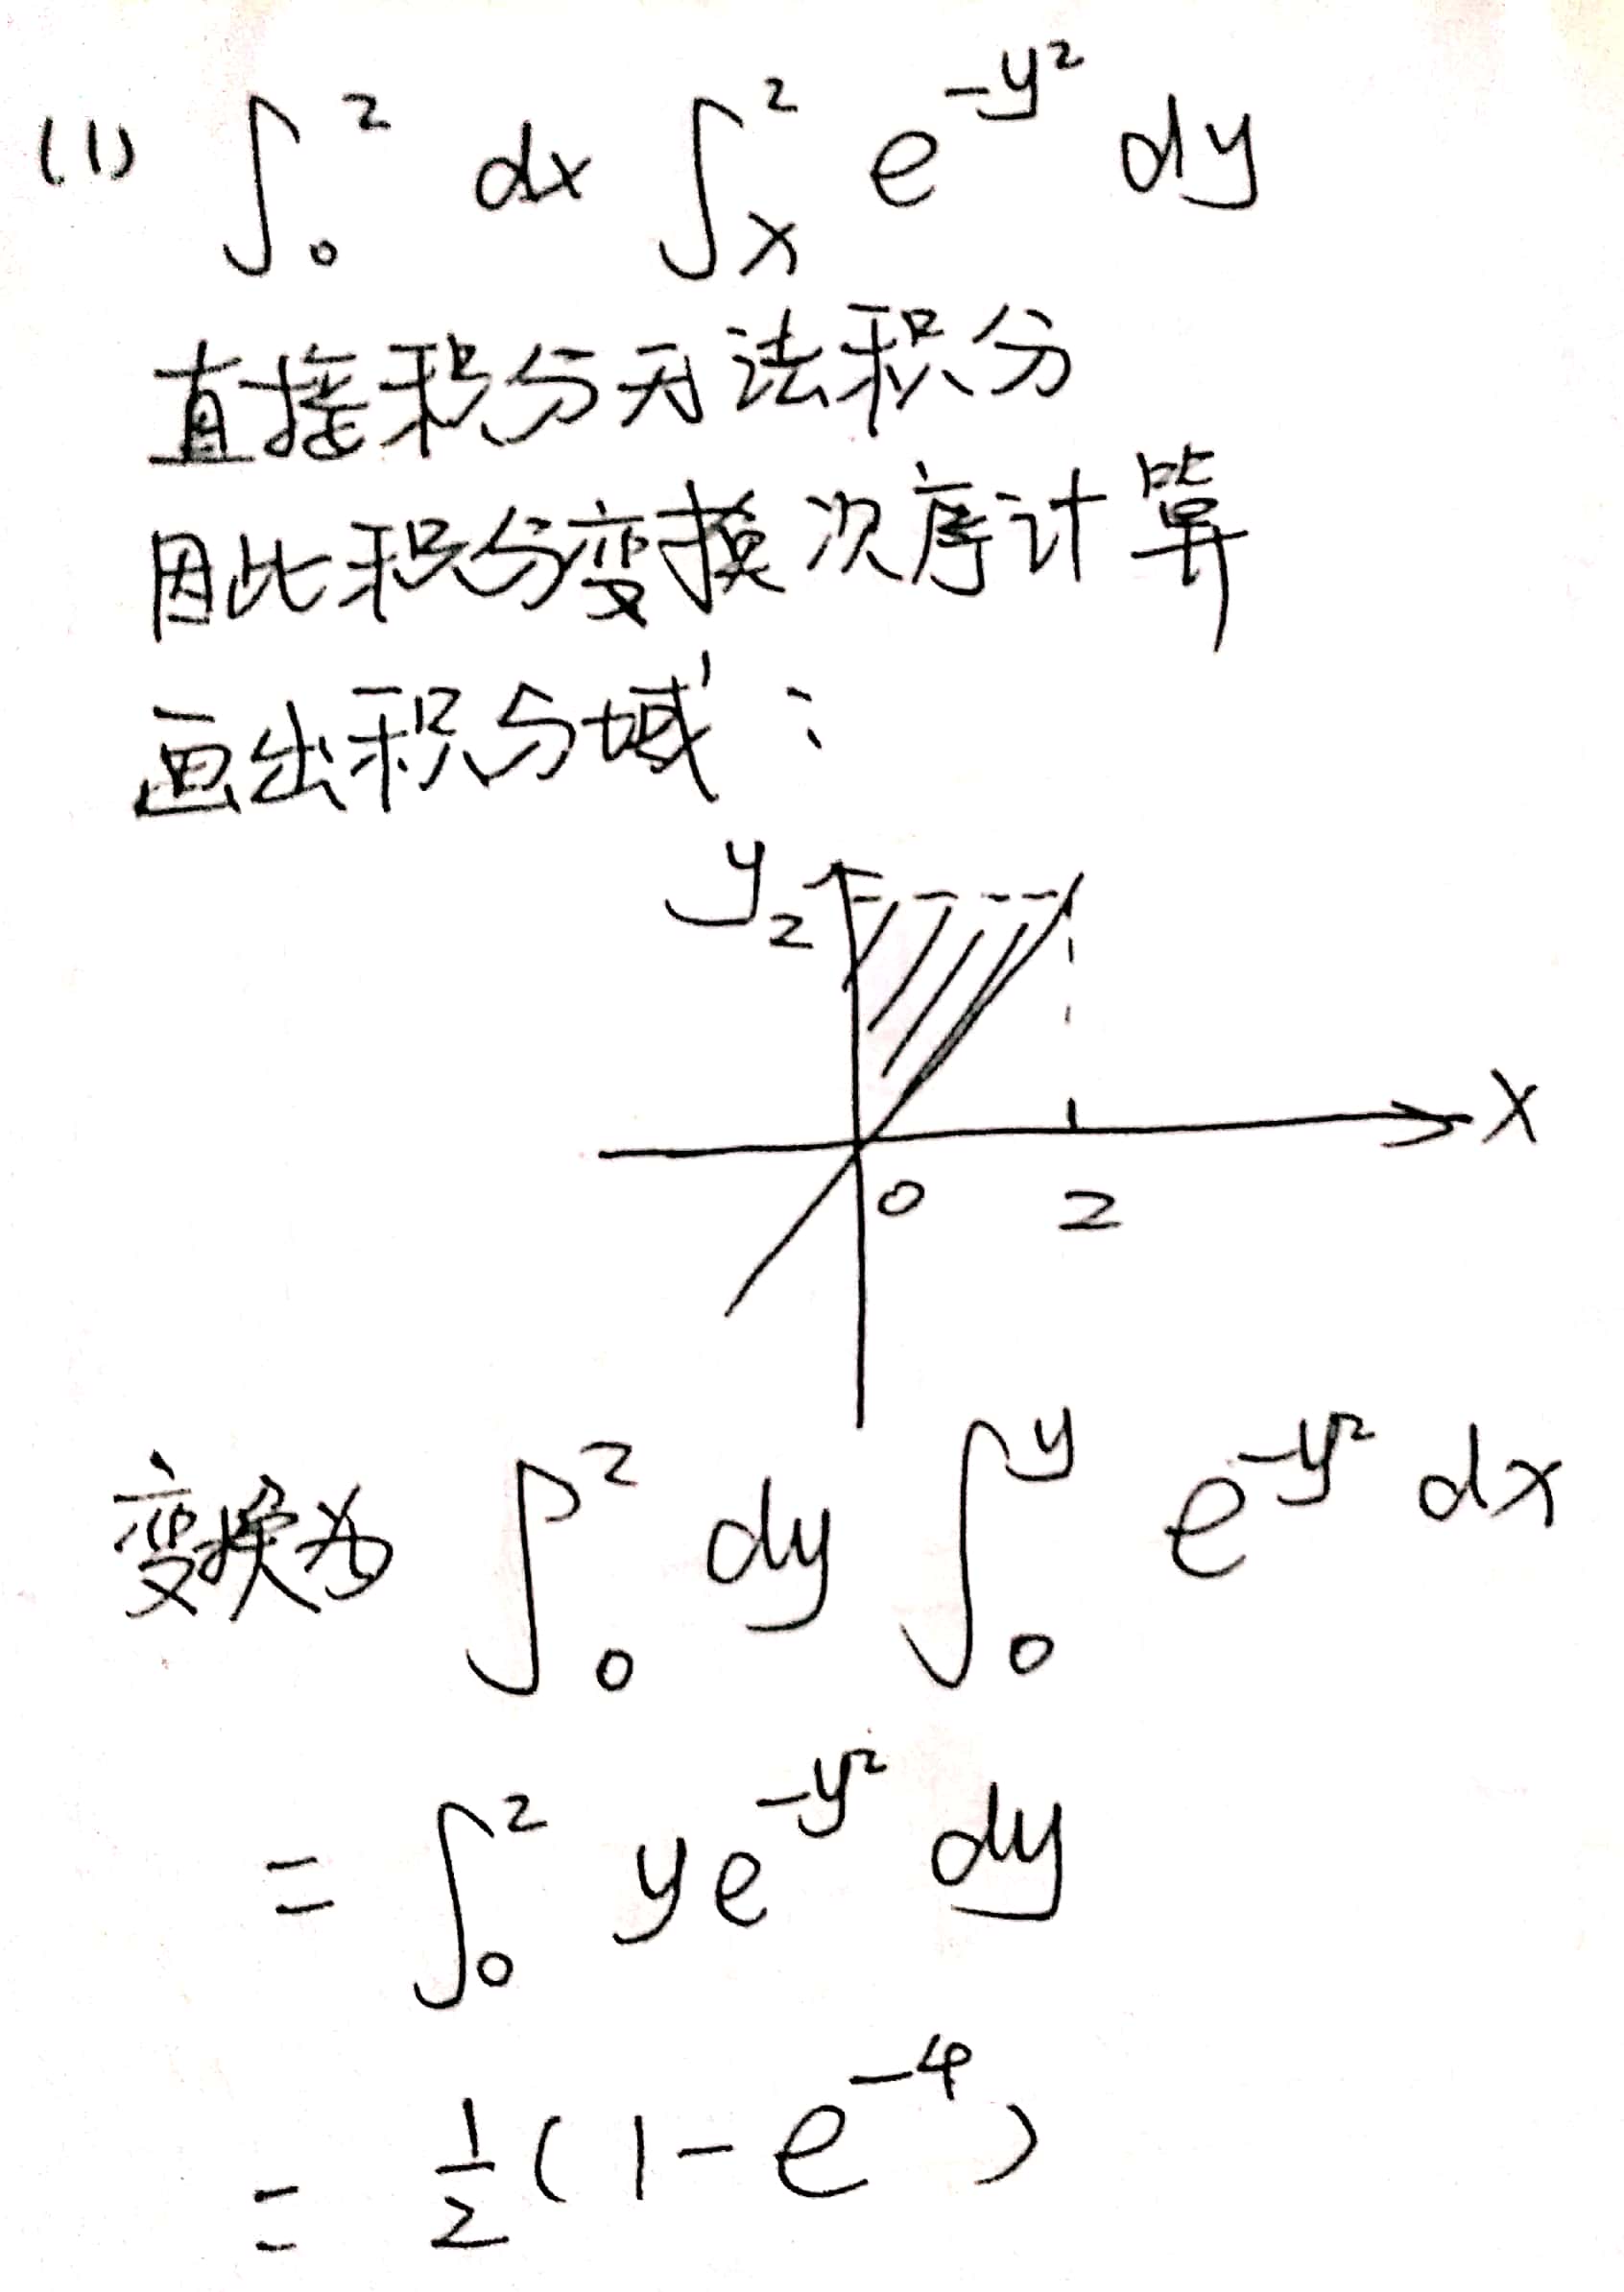 (1) ∫₀² dx ∫ₓ² e^{-y²} dy
直接积分无法积分
因此积分变换次序计算
画出积分域：
y
2
x
0 2
变换为 ∫₀² dy ∫₀^y e^{-y²} dx
= ∫₀² y e^{-y²} dy
= 1/2 (1 - e^{-4})